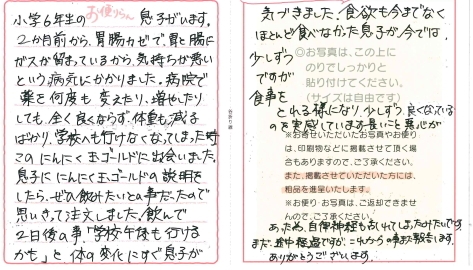 お便りらん
小学6年生の 息子がいます。
2か月前から、胃腸カゼで、胃と腸に
ガスが溜まっているから、気持ちが悪い
という病気にかかりました。病院で
薬を何度も変えたり、増やしたり
しても、全く良くならず、体重も減る
ばかり、学校へも行けなくなってしまった時
このにんにく玉ゴールドに出会いました。
息子ににんにく玉ゴールドの説明を
したら、ぜひ飲みたいとの事だったので
思いきって注文しました。飲んで
2日後の事「学校午後も行ける
かも」と体の変化にすぐ息子が
気づきました。食欲も今までなく
ほとんど食べなかった息子が今では
少しずつ
ですが
食事を
とれる様になり、少しずつ 良くなっている
のを実感しています。長いこと悪心が
あったため、自律神経も乱れてしまったみたいです。
まだ、途中経過ですが、これからの事また報告します。
ありがとうございます。
◎お写真は、この上に
のりでしっかりと
貼り付けてください。
(サイズは自由です)
※お寄せいただいたお写真やお便り
は、印刷物などに掲載させて頂く場
合もありますので、ご了承ください。
また、掲載させていただいた方には、
粗品を進呈いたします。
※お便り・お写真は、ご返却できませ
んので、ご了承ください。